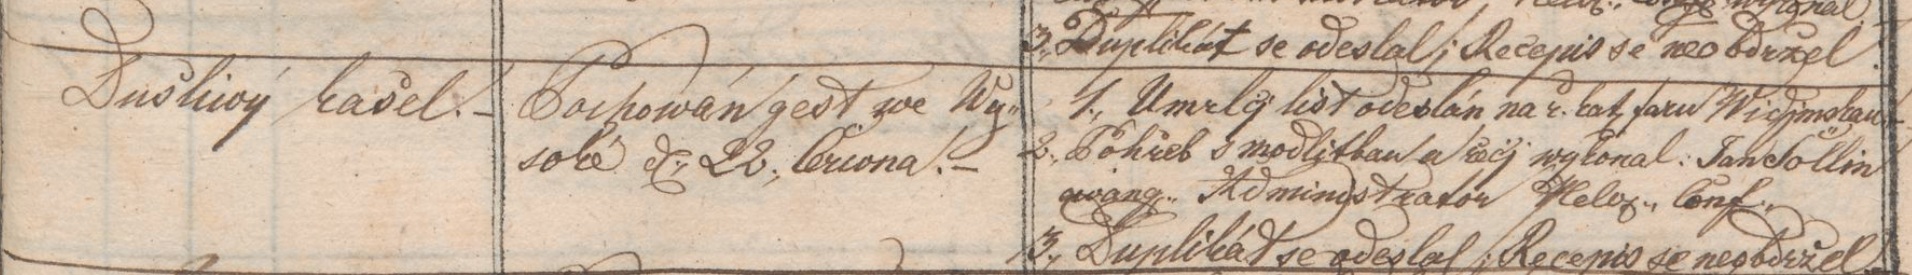 3., Duplikát se odeslal; Recepis se neobdržel.
Dušliwý kašel. –
Pochowán gest we Wy„
soké d., 22., Června. –
1., Umrlčj list odeslán na ř. kat. faru
2., Pohřeb s modlitbau a řečj wykonal: Jan
ewang., Administrátor Helv., Conf.,
3., Duplikát se odeslal; Recepis se neobdržel